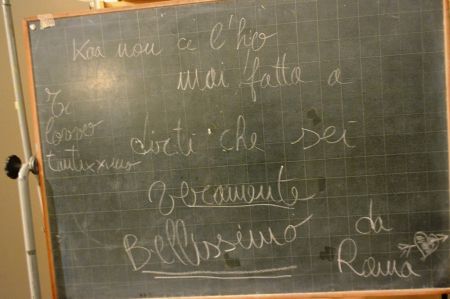 Kaa non ce l'ho
mai fatta a
dirti che sei
veramente
Bellissimo
Ti
lovvo
tantixximo
da
Roma